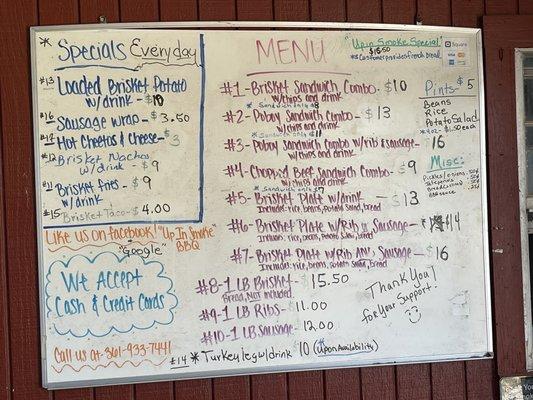 * Specials Everyday
#13 Loaded Brisket Potato
w/drink - $10
#16 Sausage wrap - $3.50
Hot Cheetos & Cheese - $3
#12 Brisket Nachos
w/drink - $9
#11 Brisket Fries - $9
w/drink
#15 Brisket Taco - $4.00
Like us on facebook! "Up In Smoke
"Google" BBQ
We Accept
Cash & Credit Cards
Call us at 361-933-7441
MENU
#1 - Brisket Sandwich Combo - $10
w/chips and drink
* Sandwich only
#2 - Poboy Sandwich Combo - $13
w/chips and drink
* Sandwich only $11
#3 - Poboy Sandwich Combo w/rib & sausage - $16
w/chips and drink
#4 - Chopped Beef Sandwich Combo - $9
w/chips and drink
* Sandwich only $7
#5 - Brisket Plate w/drink - $13
Includes: rice, beans, potato salad, bread
#6 - Brisket Plate w/Rib or Sausage - $14
Includes: rice, beans, potato salad, bread
#7 - Brisket Plate w/Rib AND Sausage - $16
Includes: rice, beans, potato salad, bread
#8 - 1 LB Brisket - $15.50
Bread, Not included
#9 - 1 LB Ribs - $11.00
#10 - 1 LB Sausage - 12.00
#14 * Turkey leg w/drink $10 (Upon Availability)
"Up in Smoke Special"
$18.50
*Customer provides french bread
Square
Pints - $5
Beans
Rice
Potato Salad
*4oz - $1.50 each
Misc:
Pickles/onions - .50¢
Thank You!
for your Support!